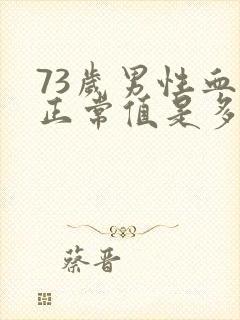 73歲男性血
正常值是多
蔡晋